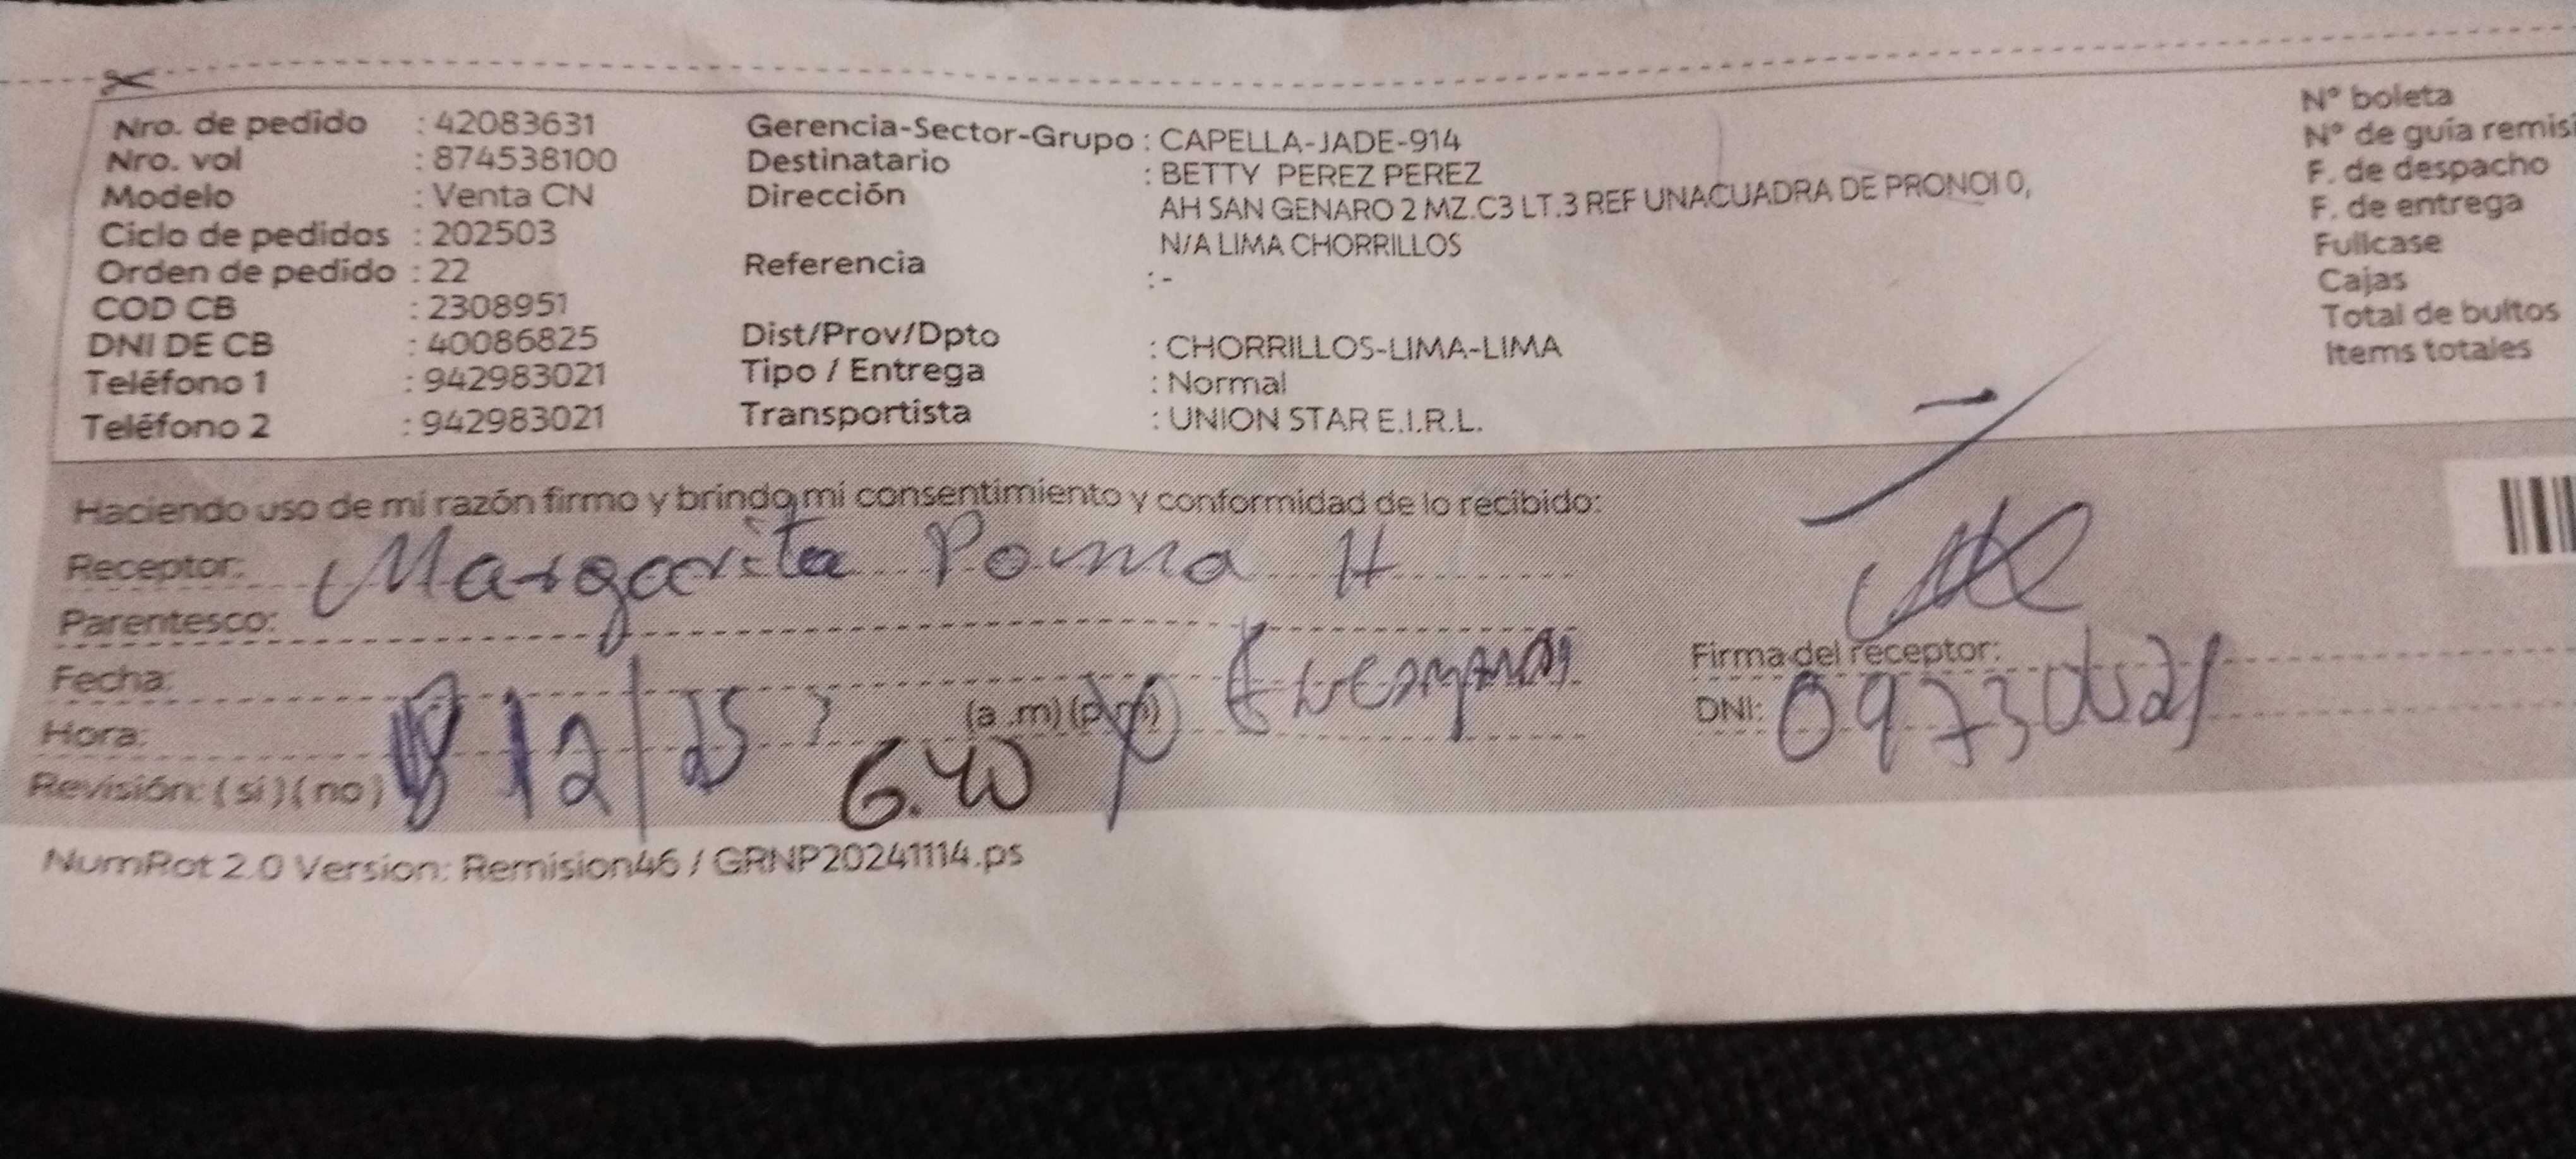 Nro. de pedido : 42083631
Nro. vol : 874538100
Modelo : Venta CN
Ciclo de pedidos : 202503
Orden de pedido : 22
COD CB : 2308951
DNI DE CB : 40086825
Teléfono 1 : 942983021
Teléfono 2 : 942983021
Gerencia-Sector-Grupo : CAPELLA-JADE-914
Destinatario : BETTY PEREZ PEREZ
Dirección AH SAN GENARO 2 MZ.C3 LT.3 REF UNACUADRA DE PRONOI 0,
N/A LIMA CHORRILLOS
Referencia : -
Dist/Prov/Dpto : CHORRILLOS-LIMA-LIMA
Tipo / Entrega : Normal
Transportista : UNION STAR E.I.R.L.
N° boleta
N° de guía remisi
F. de despacho
F. de entrega
Fullcase
Cajas
Total de bultos
Items totales
Haciendo uso de mi razón firmo y brindo mi consentimiento y conformidad de lo recibido:
Receptor: Margarita Poma H
Parentesco:
Fecha:
Hora: (a .m) (p.m)
Revisión: ( si ) ( no ) 12/25 6.40
Firma del receptor:
DNI:
NumRot 2.0 Version: Remision46 / GRNP20241114.ps